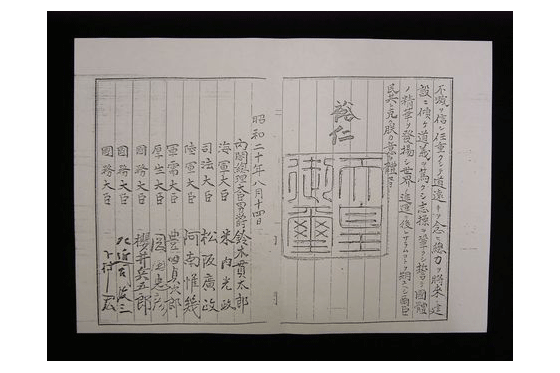 不滅ヲ信シ任重クシテ道遠キヲ念ヒ總力ヲ將來ノ建
設ニ傾ケ道義ヲ篤クシ志操ヲ鞏クシ誓テ國體
ノ精華ヲ發揚シ世界ノ進運ニ後レサラムコトヲ期スヘシ爾臣
民其レ克ク朕カ意ヲ體セヨ
裕仁
天皇
御璽
昭和二十年八月十四日
內閣總理大臣男爵 鈴木貫太郎
海軍大臣 米內光政
司法大臣 松阪廣政
陸軍大臣 阿南惟幾
軍需大臣 豐田貞次郎
厚生大臣 岡田忠彥
國務大臣 櫻井兵五郎
國務大臣 左近司政三
國務大臣 下村宏